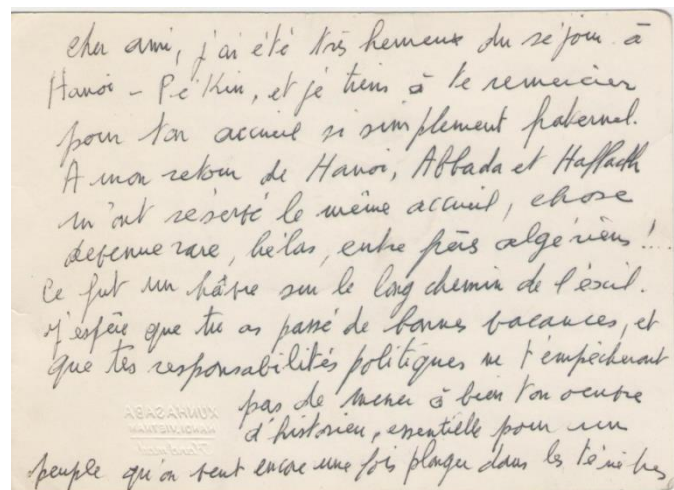 cher ami, j'ai été très heureux du séjour à
Hanoi - Pékin, et je tiens à te remercier
pour ton accueil si simplement fraternel.
A mon retour de Hanoi, Abbada et
m'ont réservé le même accueil, chose
devenue rare, hélas, entre frères algériens !...
Ce fut un hâvre sur le long chemin de l'éxil.
J'espère que tu as passé de bonnes vacances, et
que tes responsabilités politiques ne t'empêcheront
pas de mener à bien ton oeuvre
d'historien, essentielle pour un
peuple qu'on veut encore une fois plonger dans les ténèbres
XUNHASABA
HANOI, VIETNAM